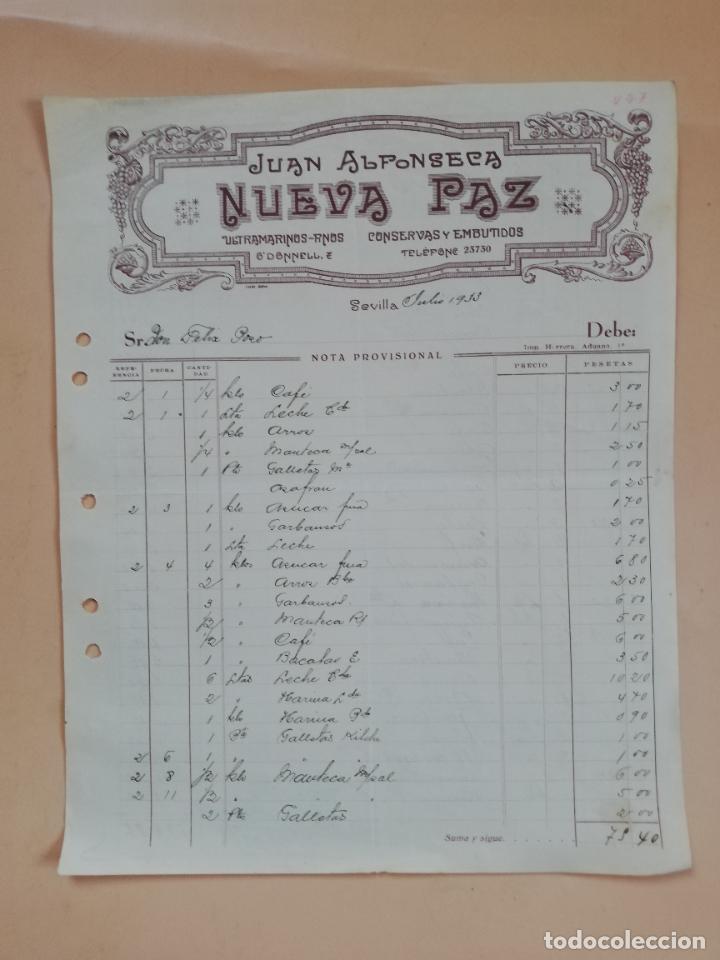 JUAN ALFONSECA
NUEVA PAZ
ULTRAMARINOS-FINOS CONSERVAS Y EMBUTIDOS
O'DONNELL, 2 TELÉFONO 23730
Sevilla Julio 1933
Sr. Don Felix Pozo Debe:
Imp. Herrera. Aduana, 1
NOTA PROVISIONAL
REFERENCIA FECHA CANTIDAD PRECIO PESETAS
2 1 1/4 klo Café 3 00
2 1 1 Lta Leche Cda 1 70
1 klo Arroz 1 15
1/4 " Manteca 2 50
1 Pte Galletas Ma 1 00
Azafran 0 25
2 3 1 klo Azucar fina 1 70
1 " Garbanzos 2 00
1 Lta Leche 1 70
2 4 4 klos Azucar fina 6 80
2 " Arroz Bbo 2 30
3 " Garbanzos 6 00
1/2 " Manteca 5 00
1/2 " Café 6 00
1 " Bacalao E 3 50
6 Ltas Leche 10 20
2 " Harina 4 70
1 klo Harina 0 90
1 Pte Galletas 1 00
2 6 1 " " 1 00
2 8 1/2 klo Manteca 6 00
2 11 1/2 " " " 5 00
2 Pts Galletas 2 00
Suma y sigue 75 40
todocoleccion
todocoleccion.net